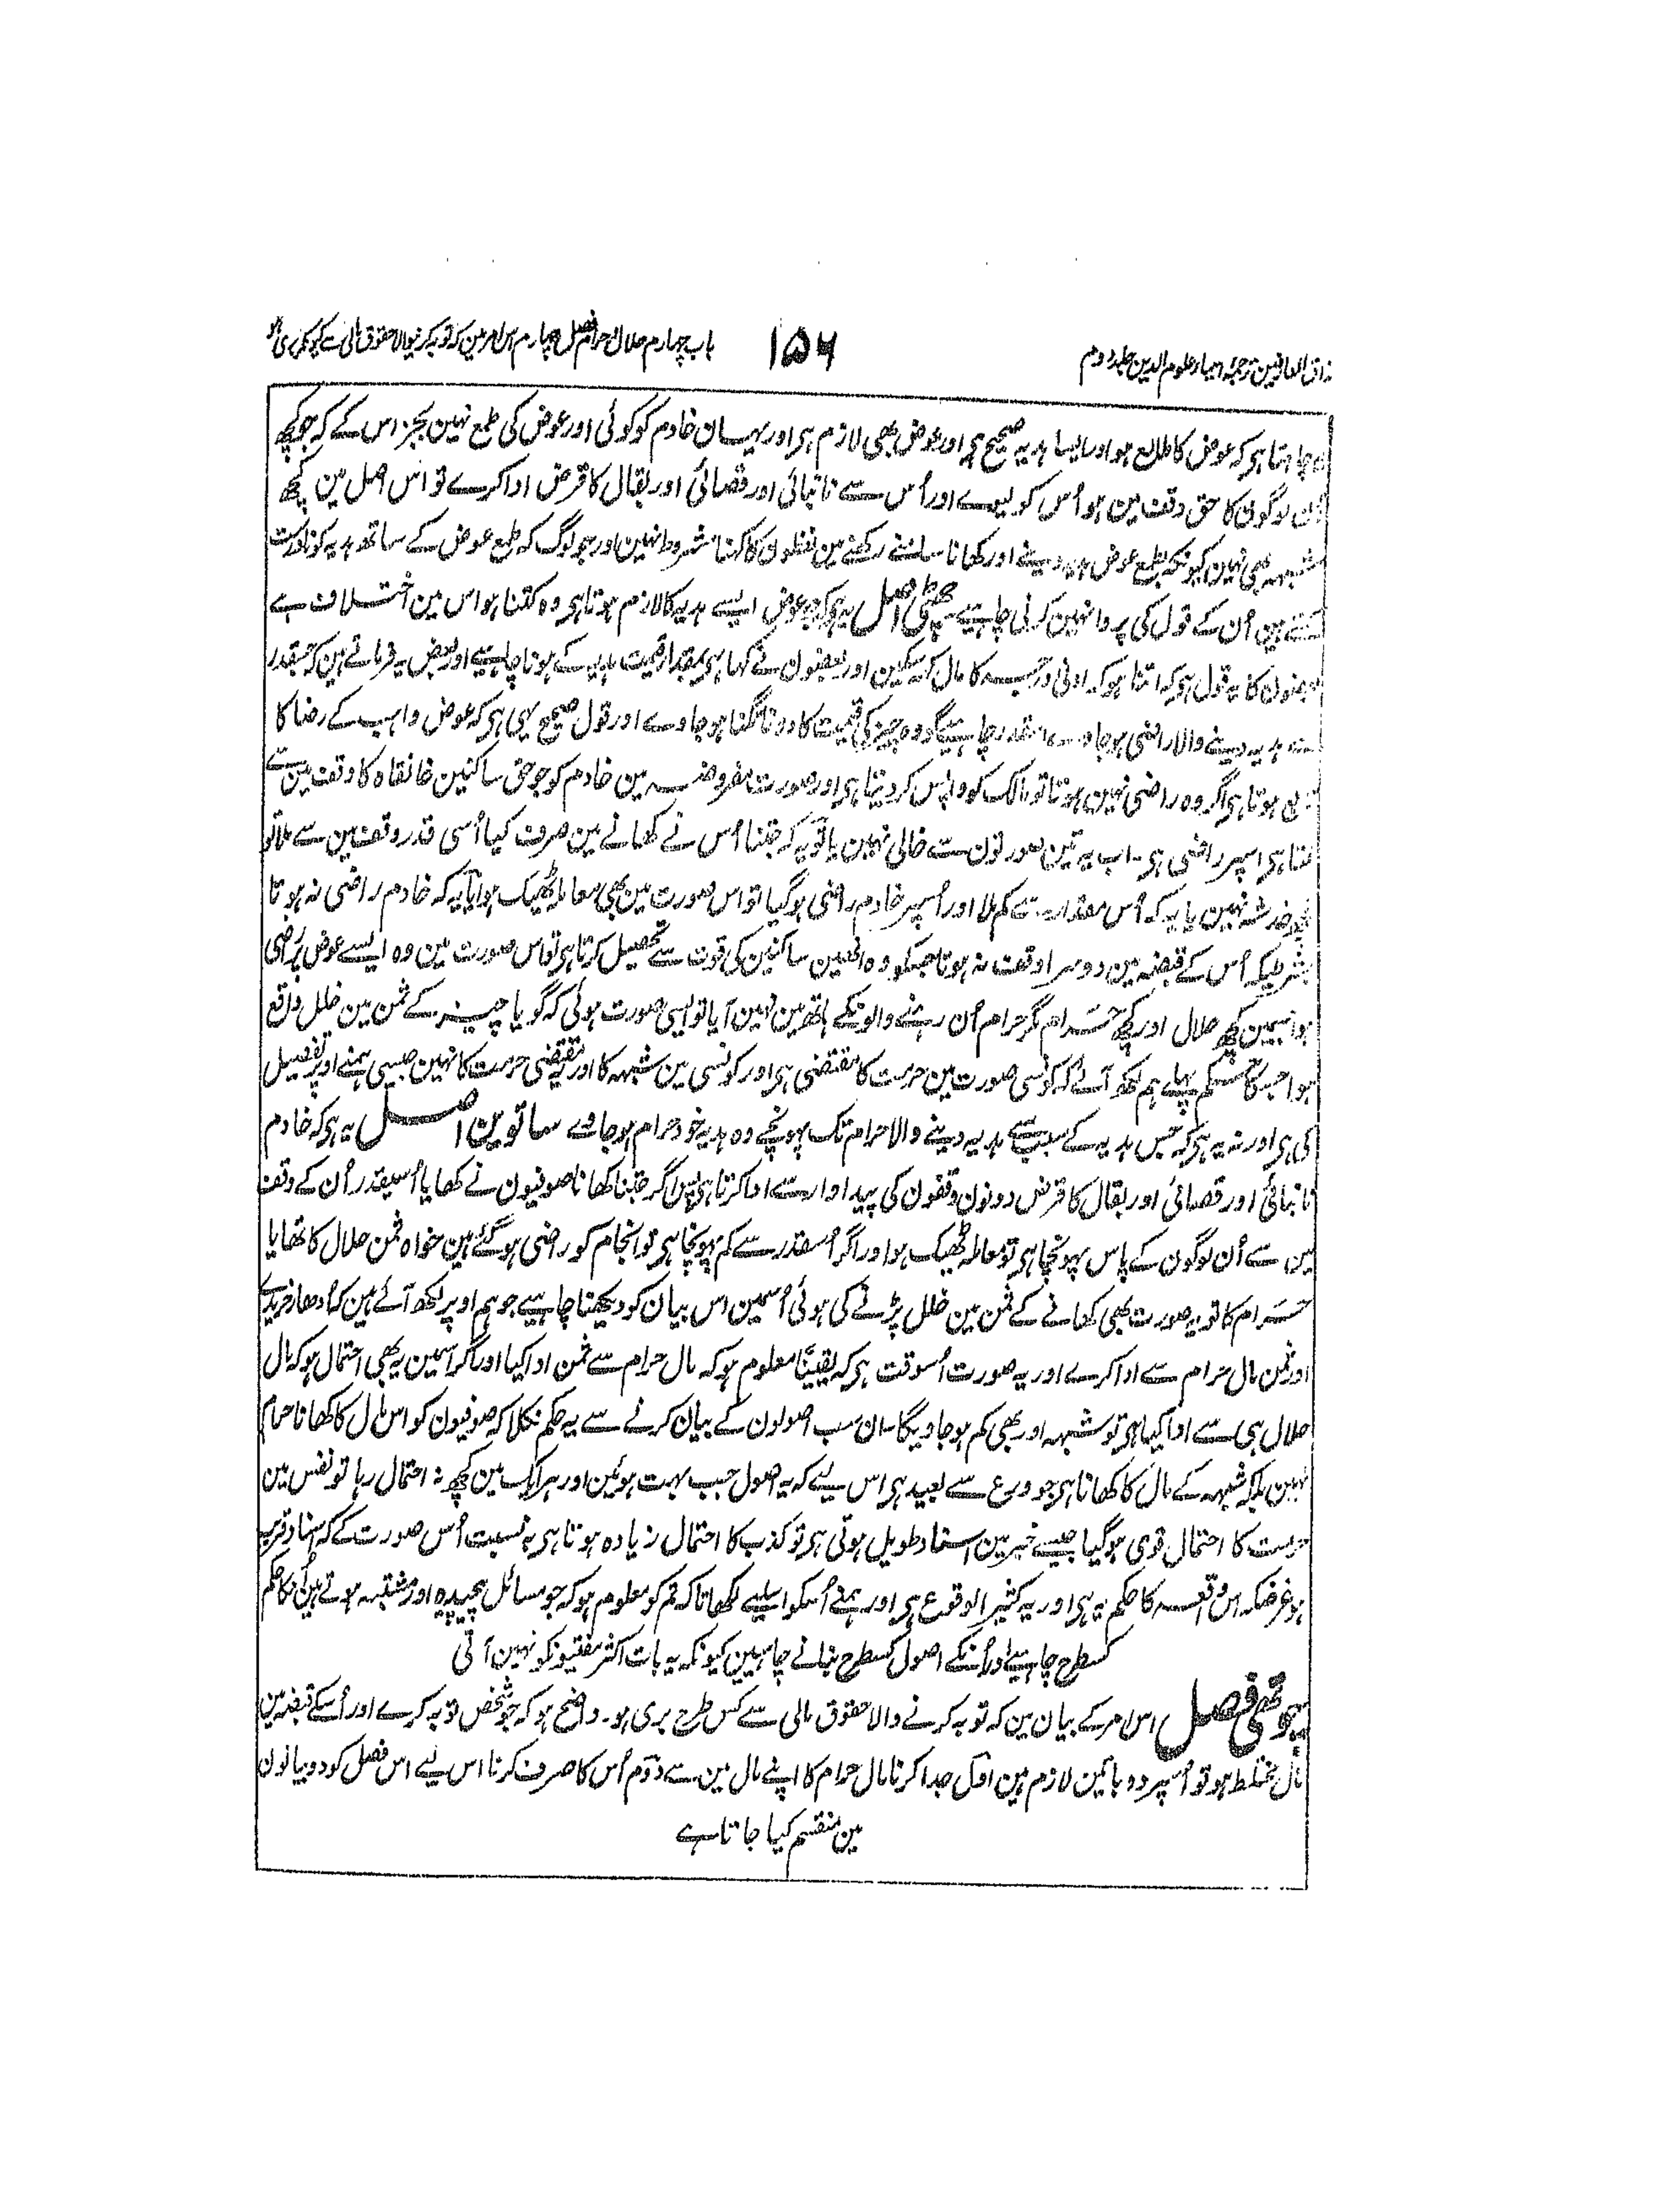 مذاق العارفین ترجمہ احیاء علوم الدین جلد دوم
۱۵۶
باب چہارم حلال و حرام فصل چہارم اس امر مین کہ توبہ کرنیوالا حقوق مالی سے کیونکر بری ہو
چاہتا ہی کہ عوض کا طامع ہو اور ایسا ہدیہ صحیح ہی اور عوض بھی لازم ہی اور یہان خادم کو کوئی اور عوض کی طمع نہین بجز اس کے کہ جو کچھ
ان لوگون کا حق وقف مین ہو اُس کو لیوے اور اُس سے نانبائی اور قصائی اور بقال کا قرض ادا کرے تو اس اصل مین کچھ
شبہہ بھی نہین کیونکہ بطمع عوض ہدیہ دینے اور کھانا سامنے رکھنے مین لفظون کا کہنا مشروط نہین اور جو لوگ کہ طمع عوض کے ساتھ ہدیہ کو نادرست
کہتے ہین اُن کے قول کی پروا نہین کرنی چاہیے۔ چھٹی اصل یہ ہی کہ جو عوض ایسے ہدیہ کا لازم ہوتا ہی وہ کتنا ہو اس مین اختلاف ہے
بعضون کا یہ قول ہی کہ اتنا ہو کہ ادنی درجہ کا مال کہہ سکین اور بعضون نے کہا ہی بمقدار قیمت ہدیہ کے ہونا چاہیے اور بعض یہ فرماتے ہین کہ جسقدر
سے ہدیہ دینے والا راضی ہو جاوے اسقدر چاہیے گو وہ چیز کی قیمت کا دونا تگنا ہو جاوے اور قول صحیح یہی ہی کہ عوض واہب کے رضا کا
تابع ہوتا ہی اگر وہ راضی نہین ہوتا تو مالک کو واپس کر دیتا ہی اور صورت مفروضہ مین خادم کو جو حق ساکنین خانقاہ کا وقف مین سے
ملتا ہی اسپر راضی ہی۔ اب یہ تین صورتون سے خالی نہین یا تو یہ کہ جتنا اُس نے کھانے مین صرف کیا اُسی قدر وقف مین سے ملا تو
کچھ خدشہ نہین یا یہ کہ اُس مقدار سے کم ملا اور اُسپر خادم راضی ہو گیا تو اس صورت مین بھی معاملہ ٹھیک ہوا یا یہ کہ خادم راضی نہ ہوتا
بشرطیکہ اُس کے قبضہ مین دوسرا وقف نہ ہوتا جسکو وہ انھین ساکنین کی قوت سے تحصیل کرتا ہی تو اس صورت مین وہ ایسے عوض پر راضی
ہوا جسمین کچھ حلال اور کچھ حرام مگر حرام اُن رہنے والونکے ہاتھ مین نہین آیا تو ایسی صورت ہوئی کہ گویا چیز کے ثمن مین خلل واقع
ہوا جسکا حکم پہلے ہم لکھ آئے کہ کونسی صورت مین حرمت کا مقتضی ہی اور کونسی مین شبہہ کا اور یہ مقتضی حرمت کا نہین جیسی ہمنے اوپر تفصیل
کی ہی اور نہ یہ ہی کہ جس ہدیہ کے سبب سے ہدیہ دینے والا حرام تک پہونچے وہ ہدیہ خود حرام ہو جاوے ساتوین اصل یہ ہی کہ خادم
نانبائی اور قصائی اور بقال کا قرض دونون وقفون کی پیداوار سے ادا کرتا ہی پس اگر جتنا کھانا صوفیون نے کھایا اُسیقدر اُن کے وقف
مین سے اُن لوگون کے پاس پہونچا ہی تو معاملہ ٹھیک ہوا اور اگر اُسقدر سے کم پہونچا ہی تو انجام کو راضی ہو گئے ہین خواہ ثمن حلال کا تھا یا
حرام کا تو یہ صورت بھی کھانے کے ثمن مین خلل پڑنے کی ہوئی اُسمین اس بیان کو دیکھنا چاہیے جو ہم اوپر لکھ آئے ہین کہ اُدھار خریدے
اور ثمن مال حرام سے ادا کرے اور یہ صورت اُسوقت ہی کہ یقیناً معلوم ہو کہ مال حرام سے ثمن ادا کیا اور اگر اسمین یہ بھی احتمال ہو کہ مال
حلال ہی سے ادا کیا ہی تو شبہہ اور بھی کم ہو جاویگا۔ ان سب اصولون کے بیان کرنے سے یہ حکم نکلا کہ صوفیون کو اس مال کا کھانا حرام
نہین بلکہ شبہہ کے مال کا کھانا ہی جو ورع سے بعید ہی اس لیے کہ یہ اصول جب بہت ہوئین اور ہر ایک مین کچھ نہ احتمال رہا تو نفس مین
حرمت کا احتمال قوی ہو گیا جیسے خبر مین اسناد طویل ہوتی ہی تو کذب کا احتمال زیادہ ہوتا ہی بہ نسبت اُس صورت کے کہ اسناد قریب
ہو غرضکہ اس واقعہ کا حکم یہ ہی اور یہ کثیر الوقوع ہی اور ہمنے اُسکو اسلیے لکھا تاکہ تم کو معلوم ہو کہ جو مسائل پیچیدہ اور مشتبہ ہوتے ہین اُنکا حکم
کسطرح چاہیے اور اُنکے اصول کسطرح بنانے چاہیین کیونکہ یہ بات اکثر مفتیونکو نہین آتی
چوتھی فصل اس امر کے بیان مین کہ توبہ کرنے والا حقوق مالی سے کس طرح بری ہو۔ واضح ہو کہ جو شخص توبہ کرے اور اُسکے قبضہ مین
مال مختلط ہو تو اُسپر دو باتین لازم ہین اول جدا کرنا مال حرام کا اپنے مال مین سے دوم اُس کا صرف کرنا اس لیے اس فصل کو دو بیانون
مین منقسم کیا جاتا ہے